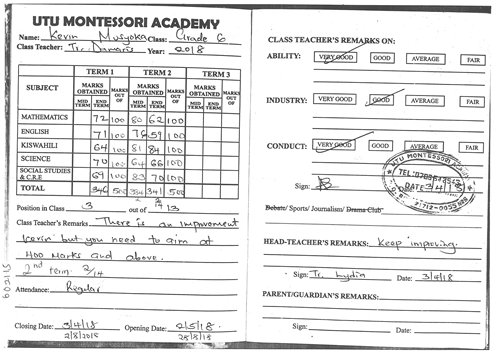 UTU MONTESSORI ACADEMY
Name: Kevin Musyoka Class: Grade 6
Class Teacher: Tr. Damaris Year: 2018
SUBJECT TERM 1 TERM 2 TERM 3
MARKS OBTAINED MARKS OUT OF MARKS OBTAINED MARKS OUT OF MARKS OBTAINED MARKS OUT OF
MID TERM END TERM MID TERM END TERM MID TERM END TERM
MATHEMATICS 72 100 80 62 100
ENGLISH 71 100 78 59 100
KISWAHILI 64 100 81 84 100
SCIENCE 70 100 64 66 100
SOCIAL STUDIES & C.R.E 69 100 83 70 100
TOTAL 346 500 341 500
Position in Class 3 out of 13
Class Teacher's Remarks There is an improvment
Kevin but you need to aim at
400 marks and above.
2nd term 2/14
Attendance: Regular
Closing Date: 3/4/18 Opening Date: 2/5/18
2/8/2018 28/8/18
CLASS TEACHER'S REMARKS ON:
ABILITY: VERY GOOD GOOD AVERAGE FAIR
INDUSTRY: VERY GOOD GOOD AVERAGE FAIR
CONDUCT: VERY GOOD GOOD AVERAGE FAIR
UTU MONTESSORI
DATE 3/4/18
Sign:
Debate/ Sports/ Journalism/ Drama Club
HEAD-TEACHER'S REMARKS: Keep improving.
Sign: Tr. Lydia Date: 3/4/18
PARENT/GUARDIAN'S REMARKS:
Sign: Date: